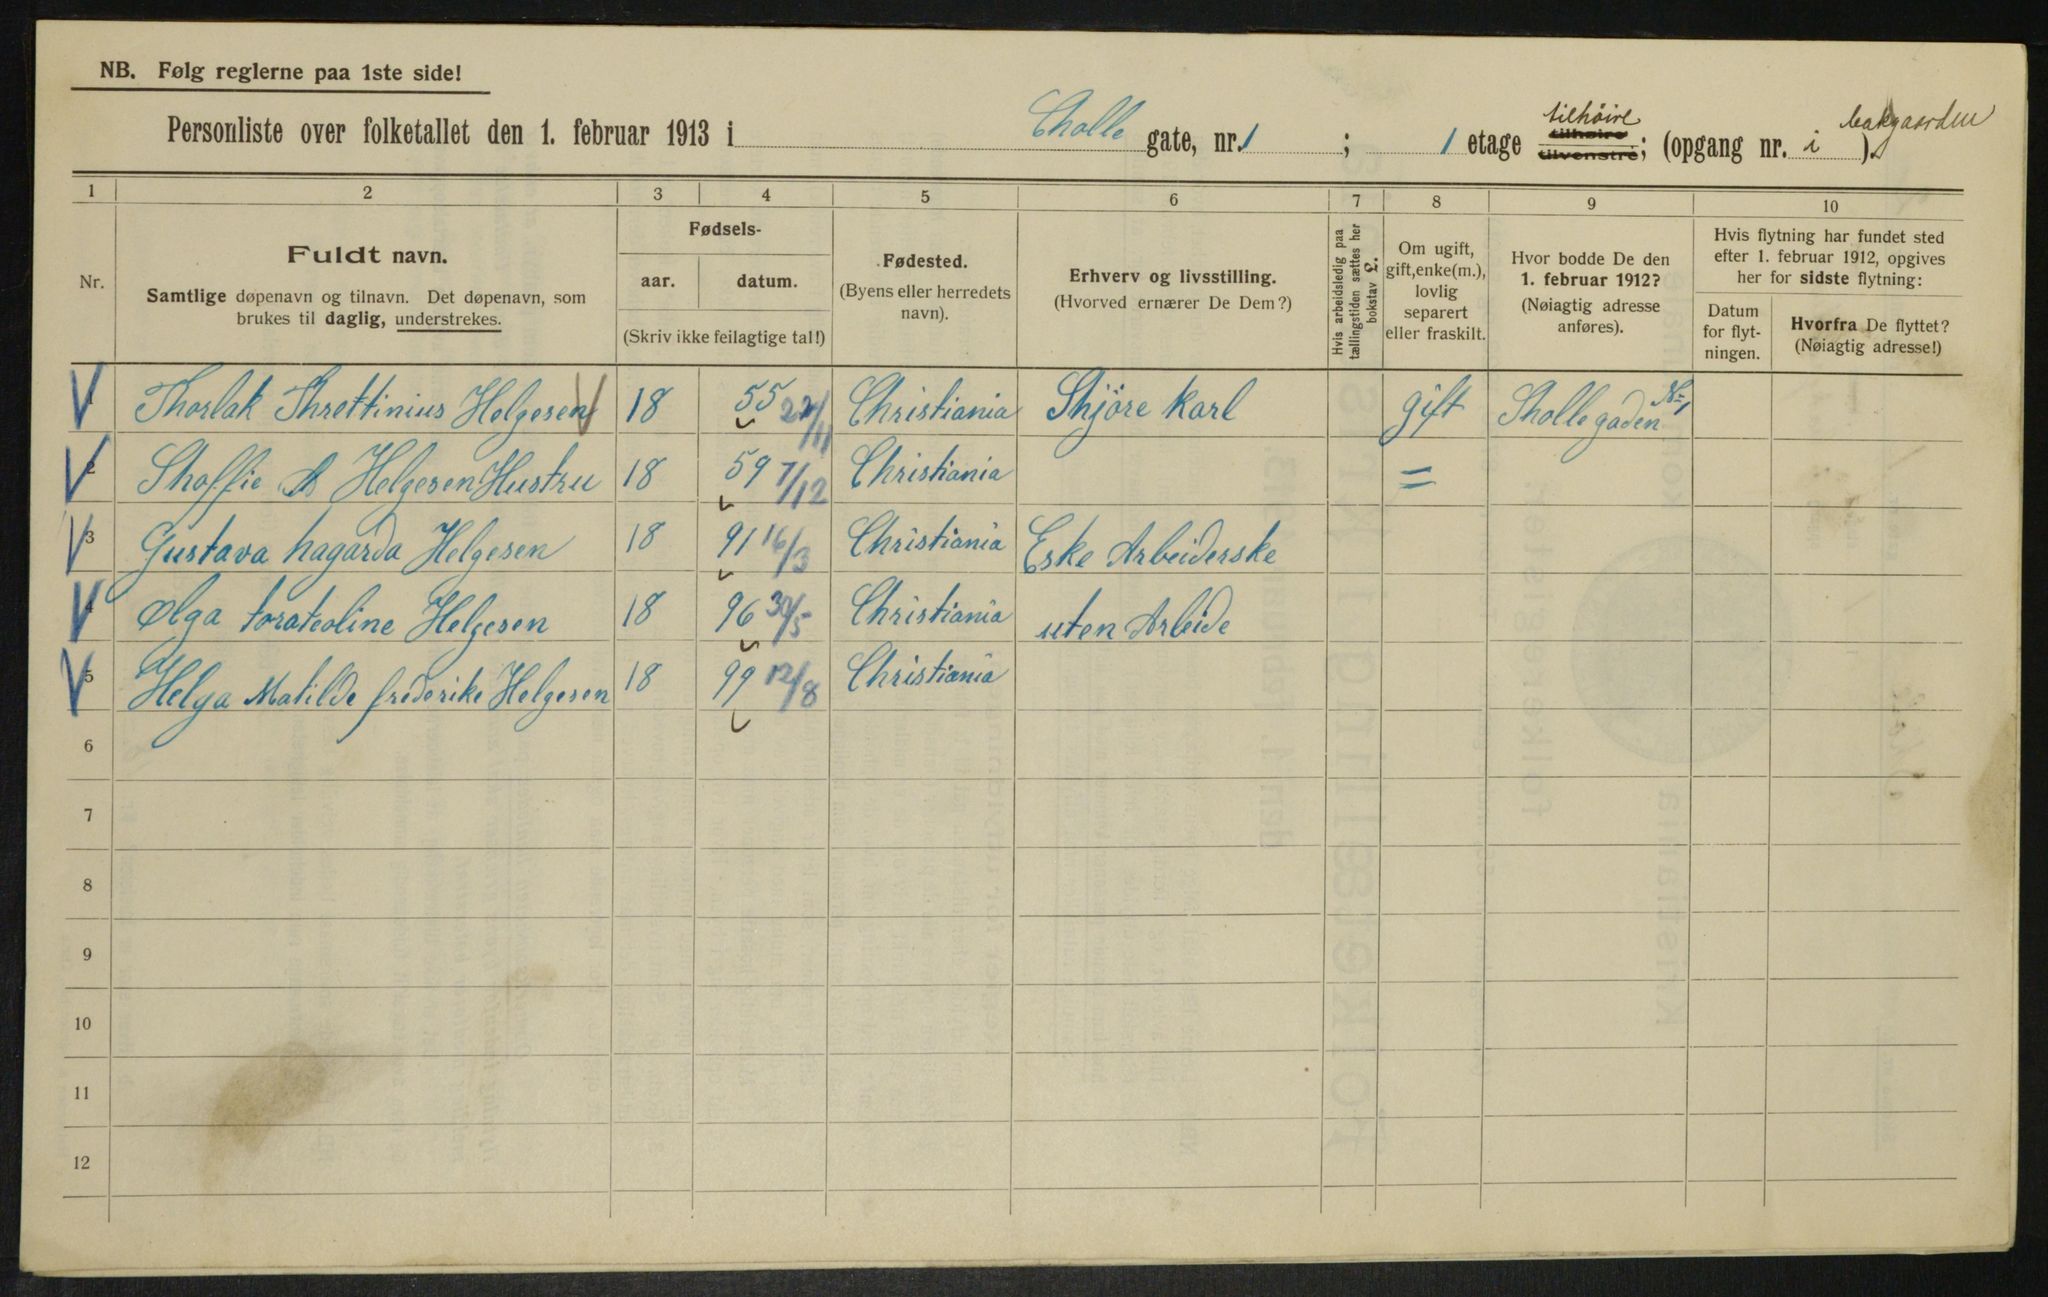 NB. Følg reglerne paa 1ste side!
Personliste over folketallet den 1. februar 1913 i Cholle gate, nr. 1 ; 1 etage tilhøire tilvenstre; (opgang nr. i ).
tilhöire
bakgaarden
1 2 3 4 5 6 7 8 9 10
Nr.
Fuldt navn.
Samtlige døpenavn og tilnavn. Det døpenavn, som
brukes til daglig, understrekes.
Fødsels-
aar. datum.
(Skriv ikke feilagtige tal!)
Fødested.
(Byens eller herredets
navn).
Erhverv og livsstilling.
(Hvorved ernærer De Dem?)
Hvis arbeidsledig paa
tællingstiden sættes her
bokstav £.
Om ugift,
gift, enke(m.),
lovlig
separert
eller fraskilt.
Hvor bodde De den
1. februar 1912?
(Nøiagtig adresse
anføres).
Hvis flytning har fundet sted
efter 1. februar 1912, opgives
her for sidste flytning:
Datum
for flyt-
ningen.
Hvorfra De flyttet?
(Nøiagtig adresse!)
1 Thorlak Threttinius Helgesen 18 55 22/11 Christiania Skjöre Karl gift Thollegaden No 1
2 Shoffie As Helgesen Hustru 18 59 7/12 Christiania =
3 Gustava hagarda Helgesen 18 91 16/3 Christiania Eske Arbeiderske
4 Olga torateoline Helgesen 18 96 30/5 Christiania uten Arbeide
5 Helga Matilde frederike Helgesen 18 99 12/8 Christiania
6
7
8
9
10
11
12